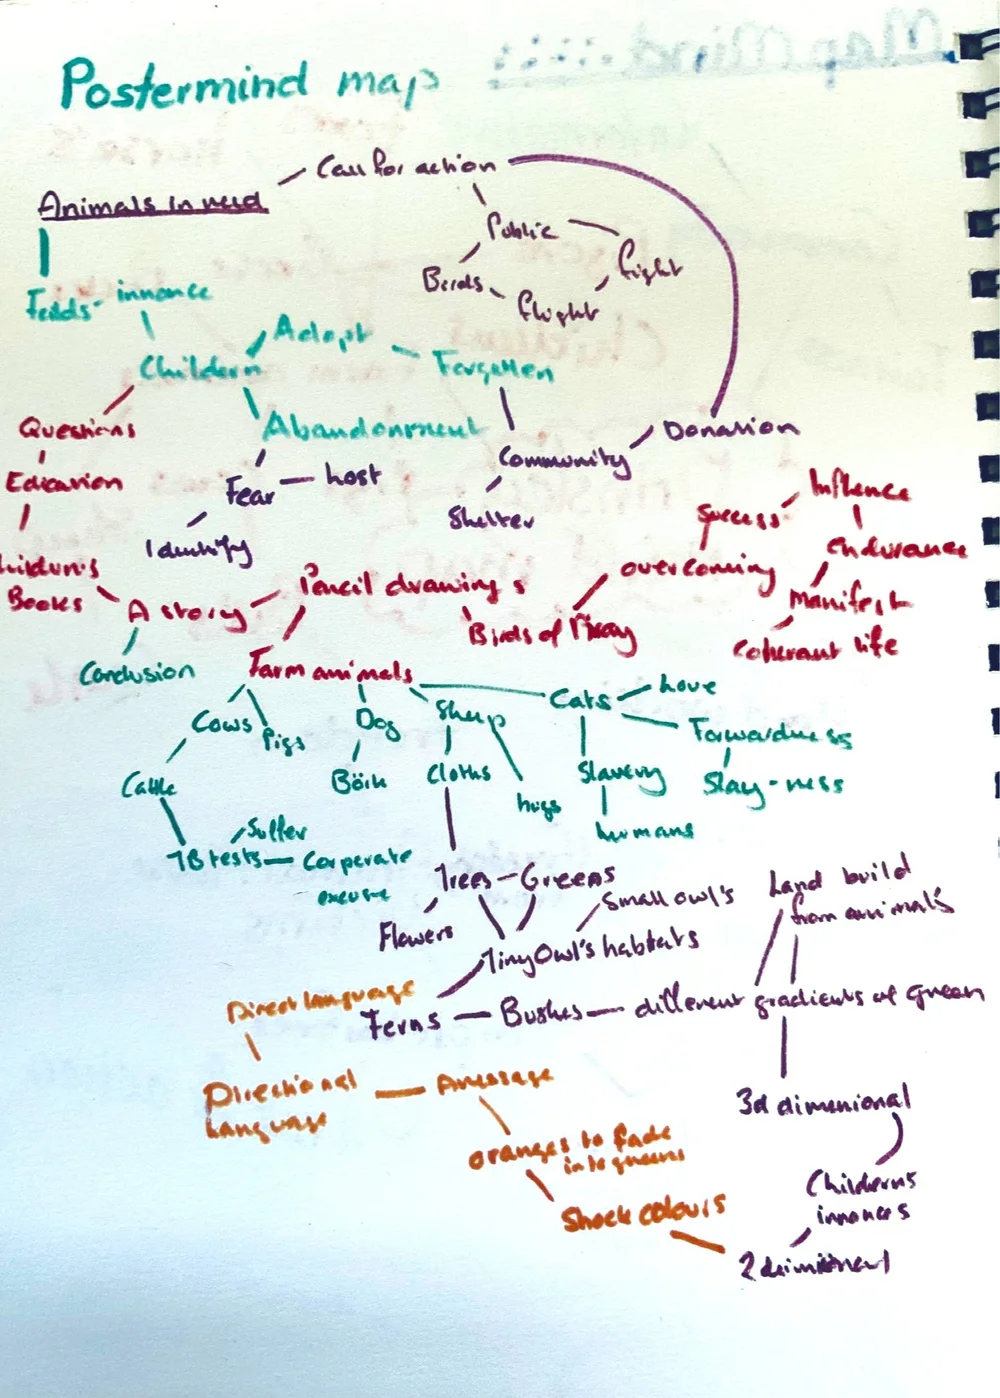 Postermind map
Call for action
Animals in need
Public
fight
Birds
flight
innonce
Adopt
Childern
Forgotten
Questions
Abandonment
Donation
Community
Edication
Fear
host
Influence
Shelter
Success
Identify
endurance
hildern's
Books
Pencil drawing s
overcoming
A story
Manifest
Birds of Pray
Coherant life
Conclusion
Farm animals
Cats
Love
Cows
Pigs
Dog
Sheep
Forwardness
Cattle
Börk
Cloths
hugs
Slavery
Slay-ness
humans
Suffer
TB tests
Corperate
excuse
Trees
Greens
Small owl's
Land build
from animals
Flowers
Tiny Owl's habtats
Direct language
Ferns
Bushes
different gradients of green
Directional
language
A message
3d dimenional
oranges to fade
into greens
Childerns
innonces
Shock colours